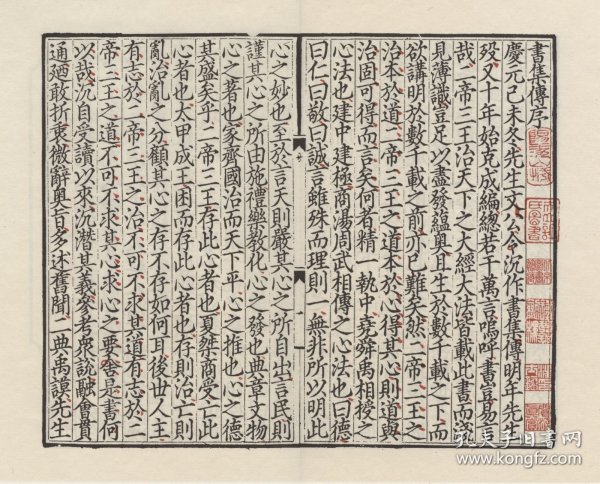 書集傳序
慶元己未冬先生文公令沉作書集傳明年先生
歿又十年始克成編總若干萬言嗚呼書豈易言
哉二帝三王治天下之大經大法皆載此書而淺
見薄識豈足以盡發蘊奧且生於數千載之下而
欲講明於數千載之前亦已難矣然二帝三王之
治本於道二帝三王之道本於心得其心則道與
治固可得而言矣何者精一執中堯舜禹相授之
心法也建中建極商湯周武相傳之心法也曰德
曰仁曰敬曰誠言雖殊而理則一無非所以明此
心之妙也至於言天則嚴其心之所自出言民則
謹其心之所由施禮樂教化心之發也典章文物
心之著也家齊國治而天下平心之推也心之德
其盛矣乎二帝三王存此心者也夏桀商受亡此
心者也太甲成王困而存此心者也存則治亡則
亂治亂之分顧其心之存不存如何耳後世人主
有志於二帝三王之治不可不求其道有志於二
帝三王之道不可不求其心求心之要舍是書何
以哉沉自受讀以來沉潛其義參考衆說融會貫
通廼敢折衷微辭奧旨多述舊聞二典禹謨先生
孔夫子旧书网
www.kongfz.com